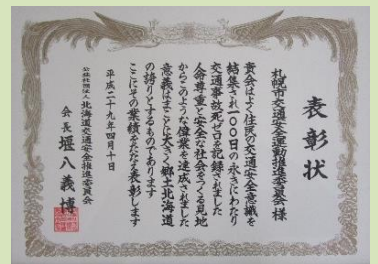 表彰状
札幌市交通安全運動推進委員会 様
貴会はよく住民の交通安全意識を
結集され一〇〇日の永きにわたり
交通事故死ゼロを記録されました
人命尊重と安全な社会をつくる見地
からこのような偉業を達成されました
意義はまことに大きく郷土北海道
の誇りとするものであります
ここにその業績をたたえ表彰します
平成二十九年四月十日
公益社団法人 北海道交通安全推進委員会
会長 堰八義博